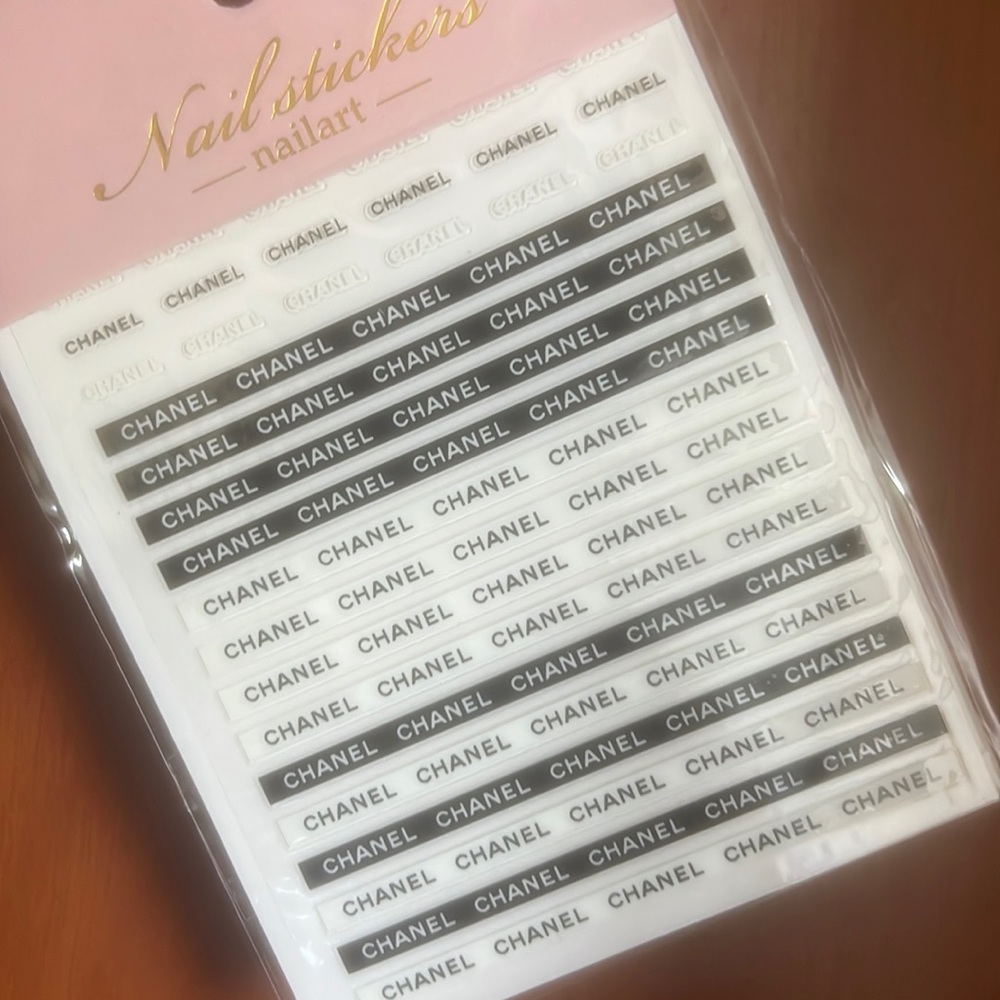 Nail stickers
nailart
CHANEL CHANEL CHANEL CHANEL CHANEL CHANEL
CHANEL CHANEL CHANEL CHANEL CHANEL CHANEL
CHANEL CHANEL CHANEL CHANEL CHANEL
CHANEL CHANEL CHANEL CHANEL CHANEL
CHANEL CHANEL CHANEL CHANEL CHANEL
CHANEL CHANEL CHANEL CHANEL CHANEL
CHANEL CHANEL CHANEL CHANEL CHANEL
CHANEL CHANEL CHANEL CHANEL CHANEL
CHANEL CHANEL CHANEL CHANEL CHANEL
CHANEL CHANEL CHANEL CHANEL CHANEL
CHANEL CHANEL CHANEL CHANEL CHANEL
CHANEL CHANEL CHANEL CHANEL CHANEL
CHANEL CHANEL CHANEL CHANEL CHANEL
CHANEL CHANEL CHANEL CHANEL CHANEL
CHANEL CHANEL CHANEL CHANEL CHANEL
CHANEL CHANEL CHANEL CHANEL CHANEL